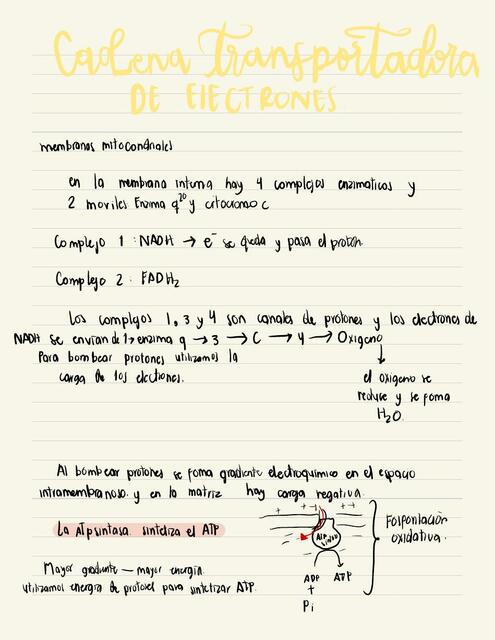 Cadena transportadora
DE ElECTRONES
membranas mitocondriales
en la membrana interna hay 4 complejos enzimaticos y
2 moviles Enzima q²⁰ y citocromo c
Complejo 1 : NADH → e⁻ se queda y pasa el proton.
Complejo 2 : FADH₂
Los complejos 1, 3 y 4 son canales de protones y los electrones de
NADH se envian de 1 → enzima q → 3 → C → 4 → Oxigeno
Para bombear protones utilizamos la
carga de los electrones.
el oxigeno se
reduse y se foma
H₂O.
Al bombear protones se foma gradiente electroquimico en el espacio
intramembranoso. y en la matriz hay carga negativa.
La ATpsintasa. sintetiza el ATP
Mayor gradiente — mayor energia.
utilizamos energia de protones para sintetizar ATP.
+ + - + - +
ATP
ADP ATP
+
Pi
Fosforilación
oxidativa.